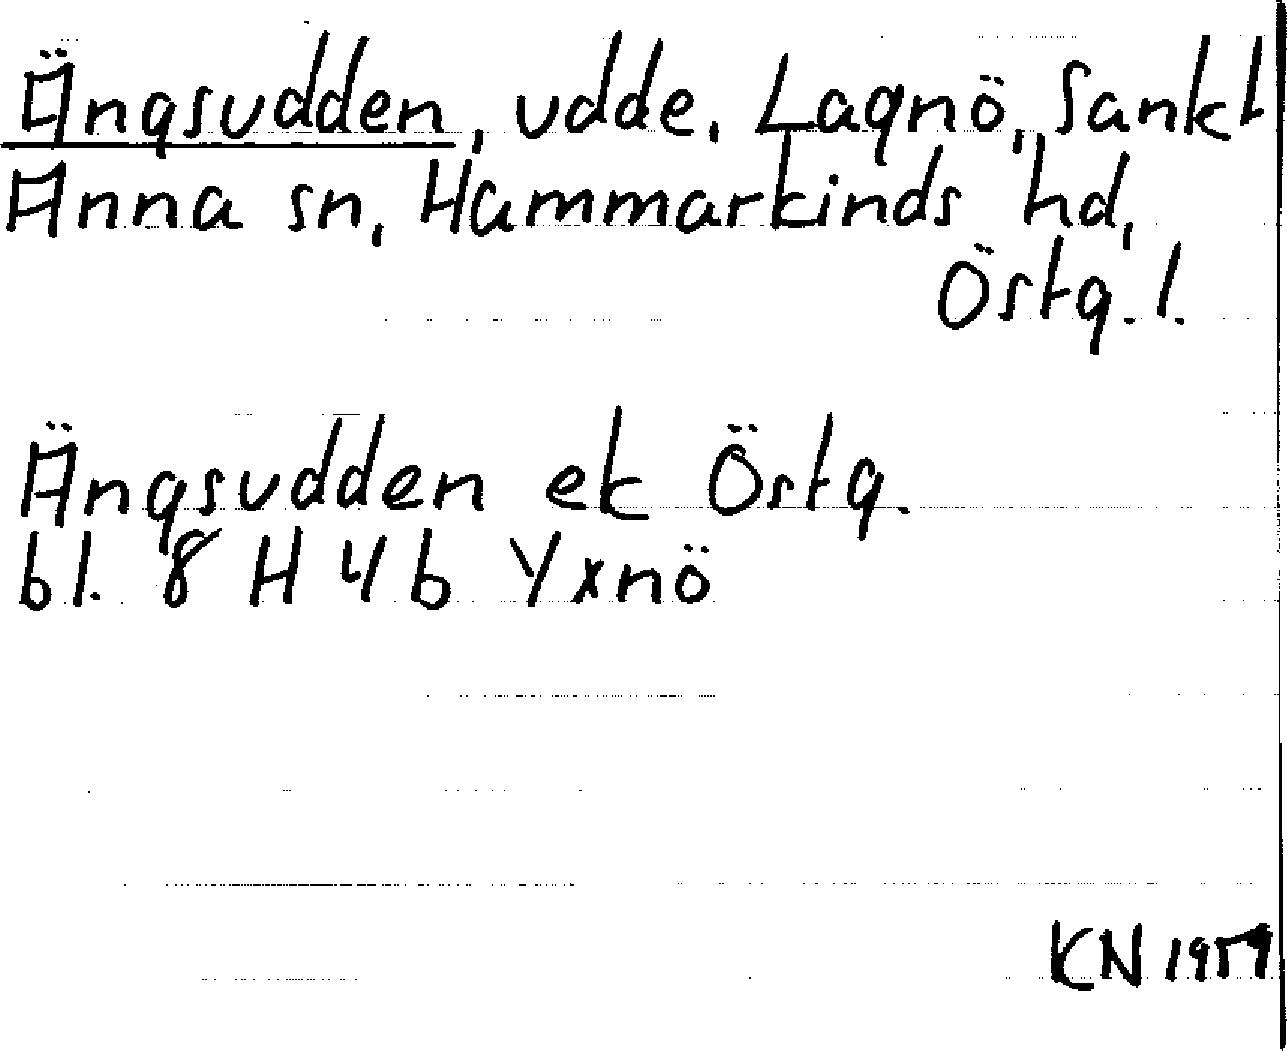 Ängsudden, udde, Lagnö, Sankt
Anna sn, Hammarkinds hd,
Östg. l.
Ängsudden ek Östg.
bl. 8 H 4 b Yxnö
KN